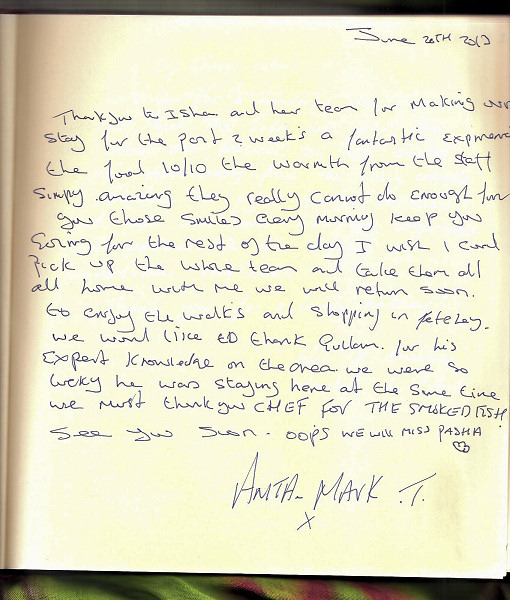 June 20TH 2013
Thankyou to Isha and her team for making our
stay for the past 2 week's a fantastic experience
the food 10/10 the warmth from the staff
simply amazing they really cannot do enough for
you those smiles every morning keep you
going for the rest of the day I wish I could
pick up the whole team and take them all
all home with me we will return soon.
to enjoy the walk's and shopping in
we would like to thank Gullam. for his
expert knowledge on the area we were so
lucky he was staying here at the same time
we must thankyou CHEF FOR THE SMOKED FISH
see you soon. OOPS WE WILL MISS PASHA
ANITA MARK .T.
x